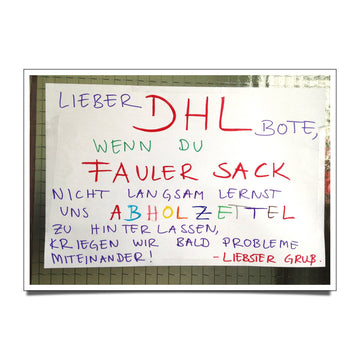 LIEBER DHL BOTE,
WENN DU
FAULER SACK
NICHT LANGSAM LERNST
UNS ABHOLZETTEL
ZU HINTERLASSEN,
KRIEGEN WIR BALD PROBLEME
MITEINANDER! - LIEBSTER GRUß.